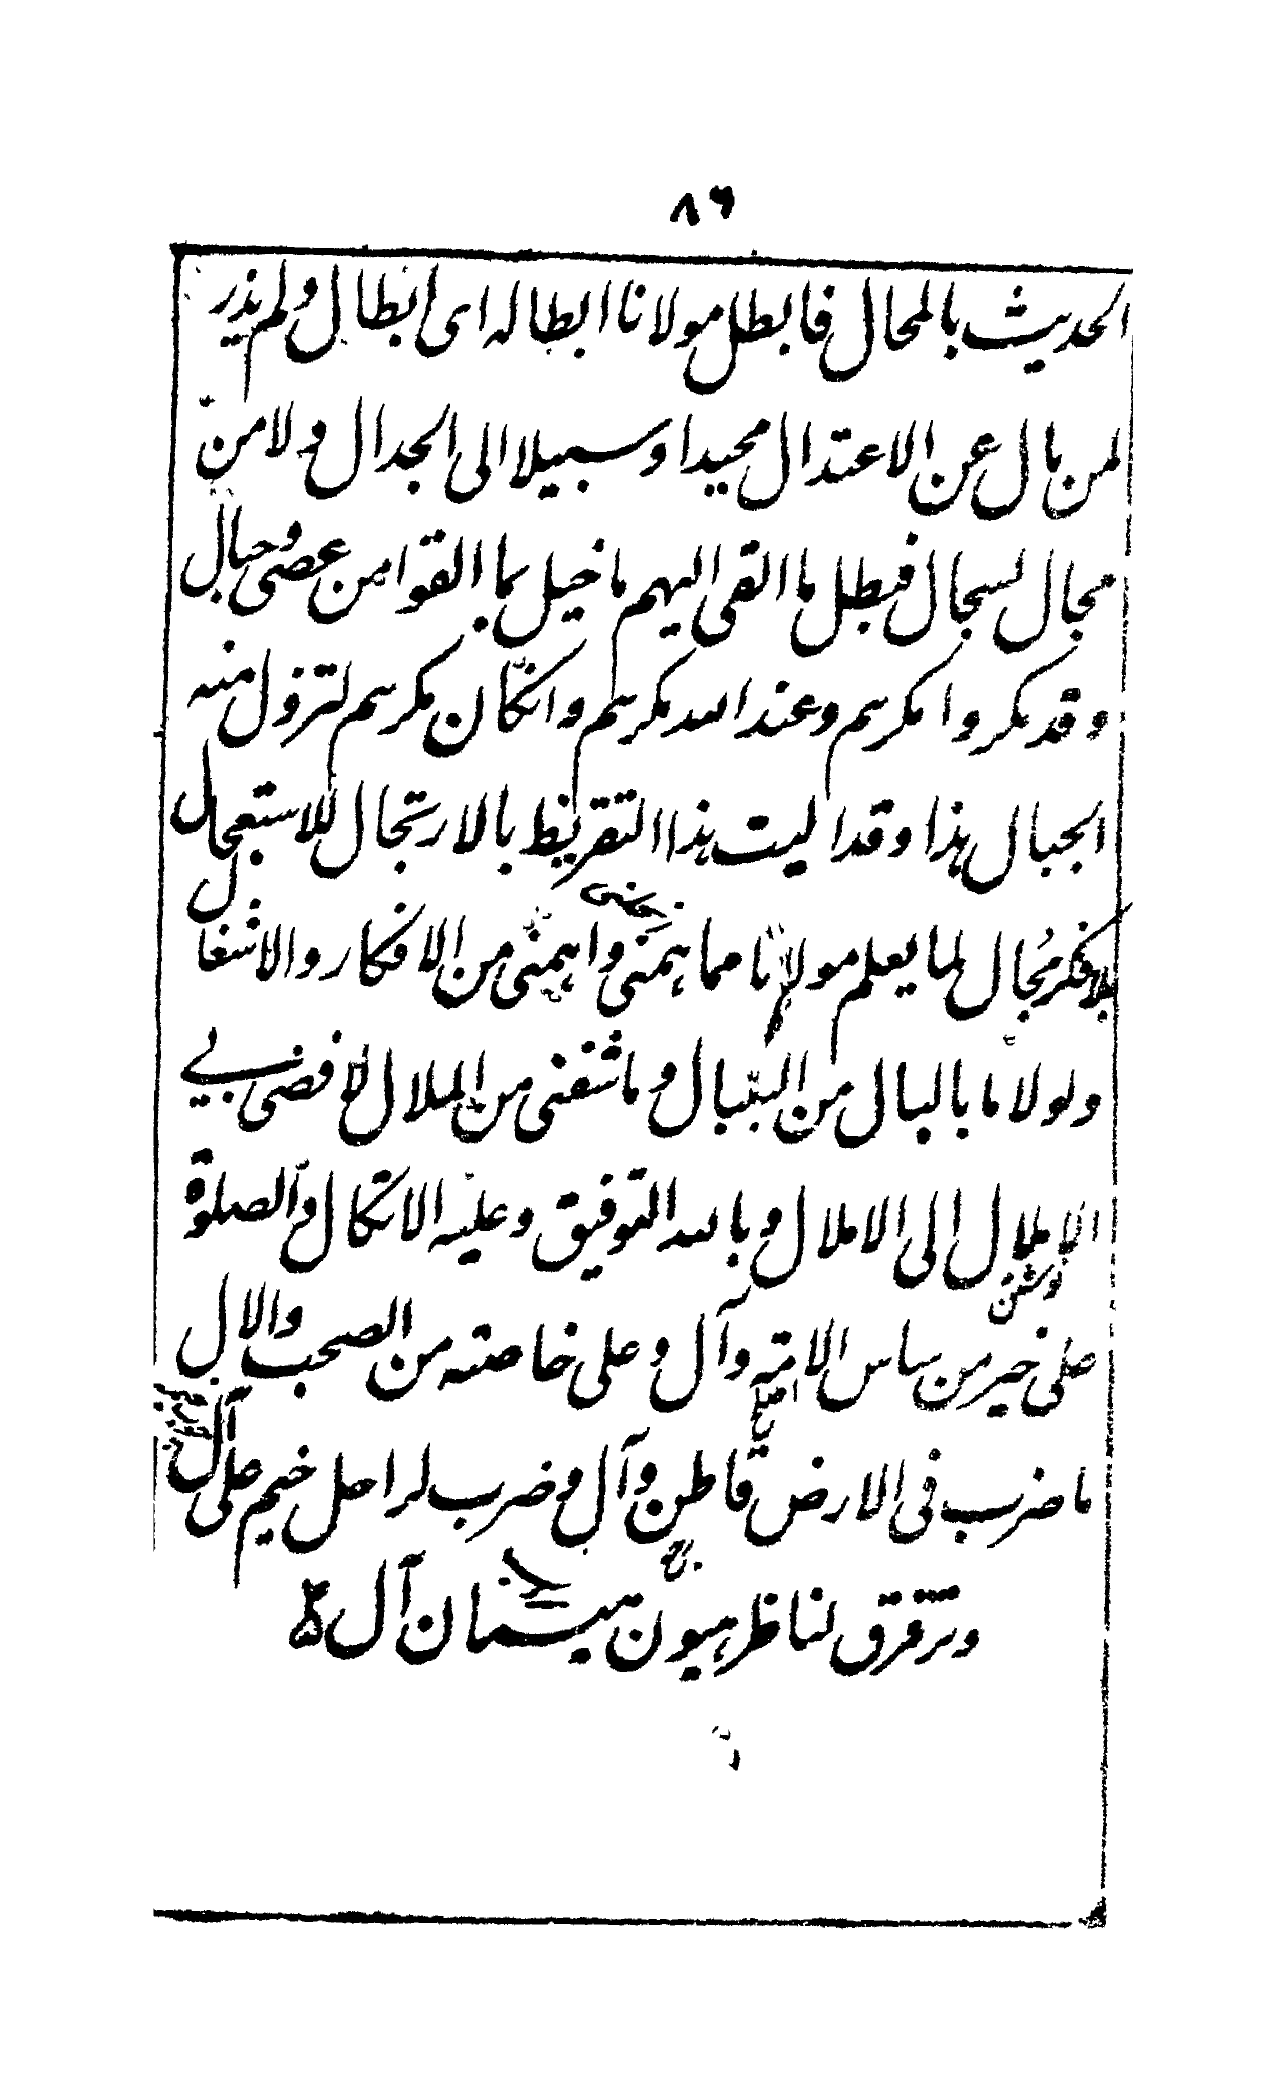 ٨٦
الحديث بالمحال فابطل مولانا ابطاله اى ابطال ولم يذر
لمن بال عن الاعتدال محيدا وسبيلا الى الجدال ولا من
مجال لسجال فبطل ما القى اليهم ما خيل بما القوا من عصى وحبال
وقد مكروا مكرهم وعند الله مكرهم وان كان مكرهم لتزول منه
الجبال هذا وقد اليت هذا التقريظ بالارتجال للاستعجال
بلا فكر مجال لما يعلم مولانا مما همنى واهمنى من الافكار والاشغال
ولولا ما بالبال من البلبال وما شفنى من الملال لافضى بي
الاملال الى الاملال وبالله التوفيق وعليه الاتكال والصلوة
على خير من ساس الامة وآل وعلى خاصته من الصحب والال
ما ضرب فى الارض قاطن وآل وضرب لراحل خيم على آل
وترقرق لناظر هيون آل